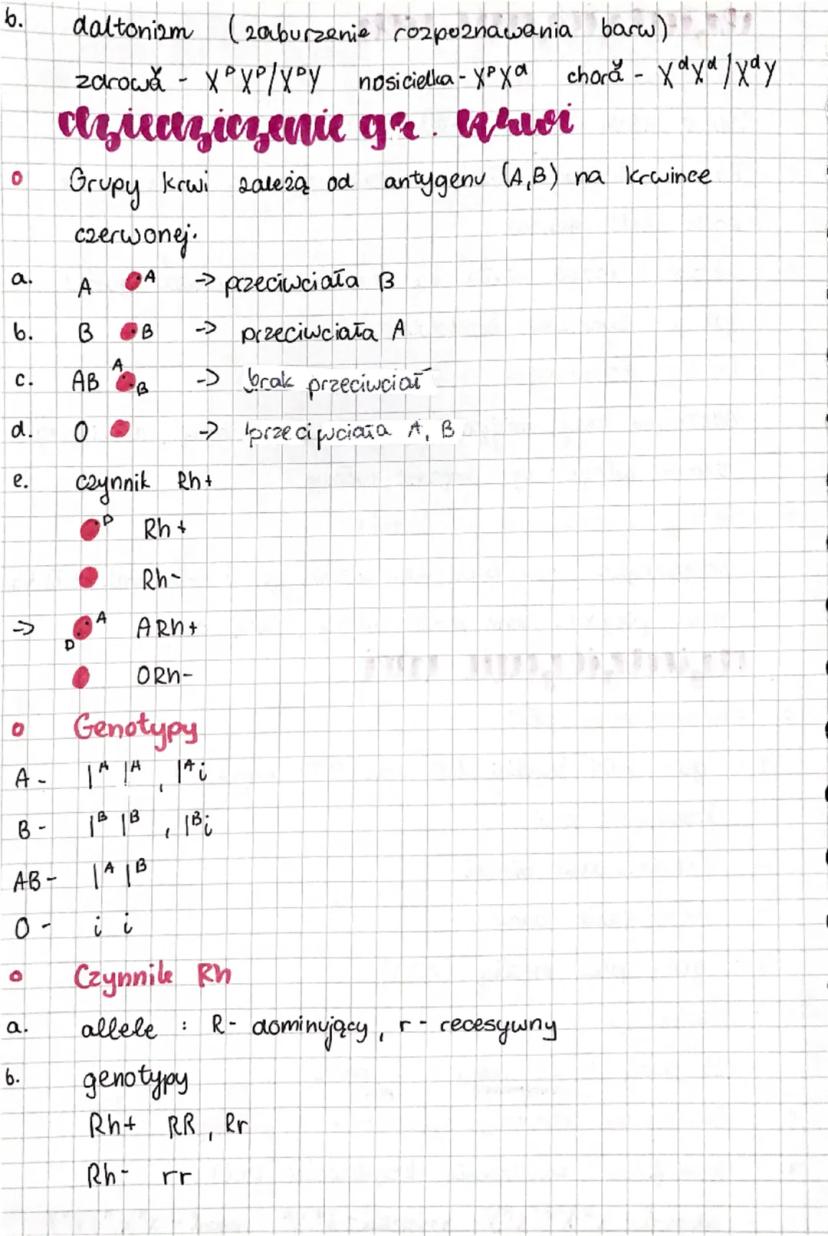 b. daltonizm (zaburzenie rozpoznawania barw)
zdrowa/y - XᴰXᴰ/XᴰY nosicielka - XᴰXᵈ chora/y - XᵈXᵈ/XᵈY
dziedziczenie gr. krwi
o Grupy krwi zależą od antygenu (A,B) na krwince
czerwonej.
a. A A -> przeciwciała B
b. B B -> przeciwciała A
c. AB A B -> brak przeciwciał
d. O -> przeciwciała A, B
e. czynnik Rh+
D Rh+
Rh-
-> D A ARh+
ORh-
o Genotypy
A - Iᴬ Iᴬ, Iᴬi
B - Iᴮ Iᴮ, Iᴮi
AB - Iᴬ Iᴮ
O - i i
o Czynnik Rh
a. allele : R - dominujący, r - recesywny
b. genotypy
Rh+ RR, Rr
Rh- rr